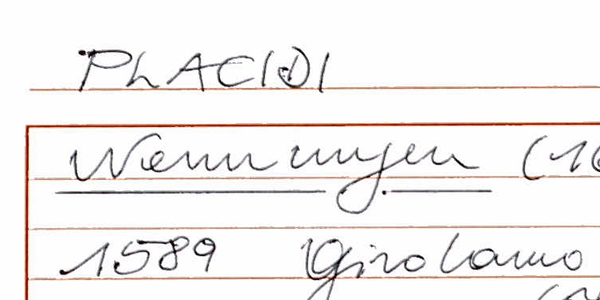 PLACIDI
Nennungen (16
1589 Girolamo